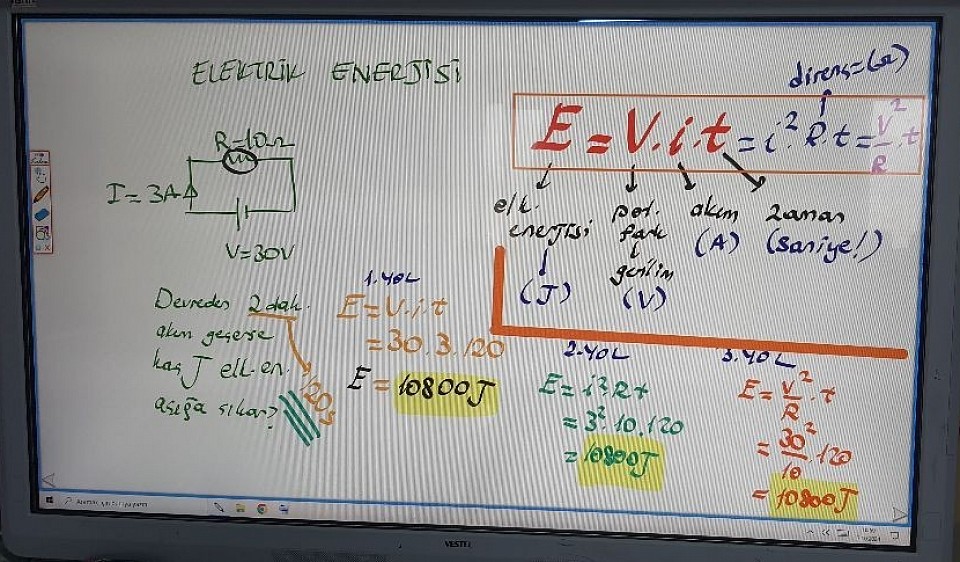 ELEKTRİK ENERJİSİ
R=10Ω
I=3A
V=30V
direnç=(Ω)
E=V.i.t=i².R.t=V²/R.t
elk. enerjisi
(J)
pot. fark
gerilim
(V)
akım
(A)
zaman
(saniye!)
Devreden 2 dak.
akım geçerse
kaç J elk.en.
açığa çıkar?
120s
1.YOL
E=V.i.t
=30.3.120
E=10800J
2.YOL
E=i².R.t
=3².10.120
=10800J
3.YOL
E=V²/R.t
=30²/10.120
=10800J
VESTEL